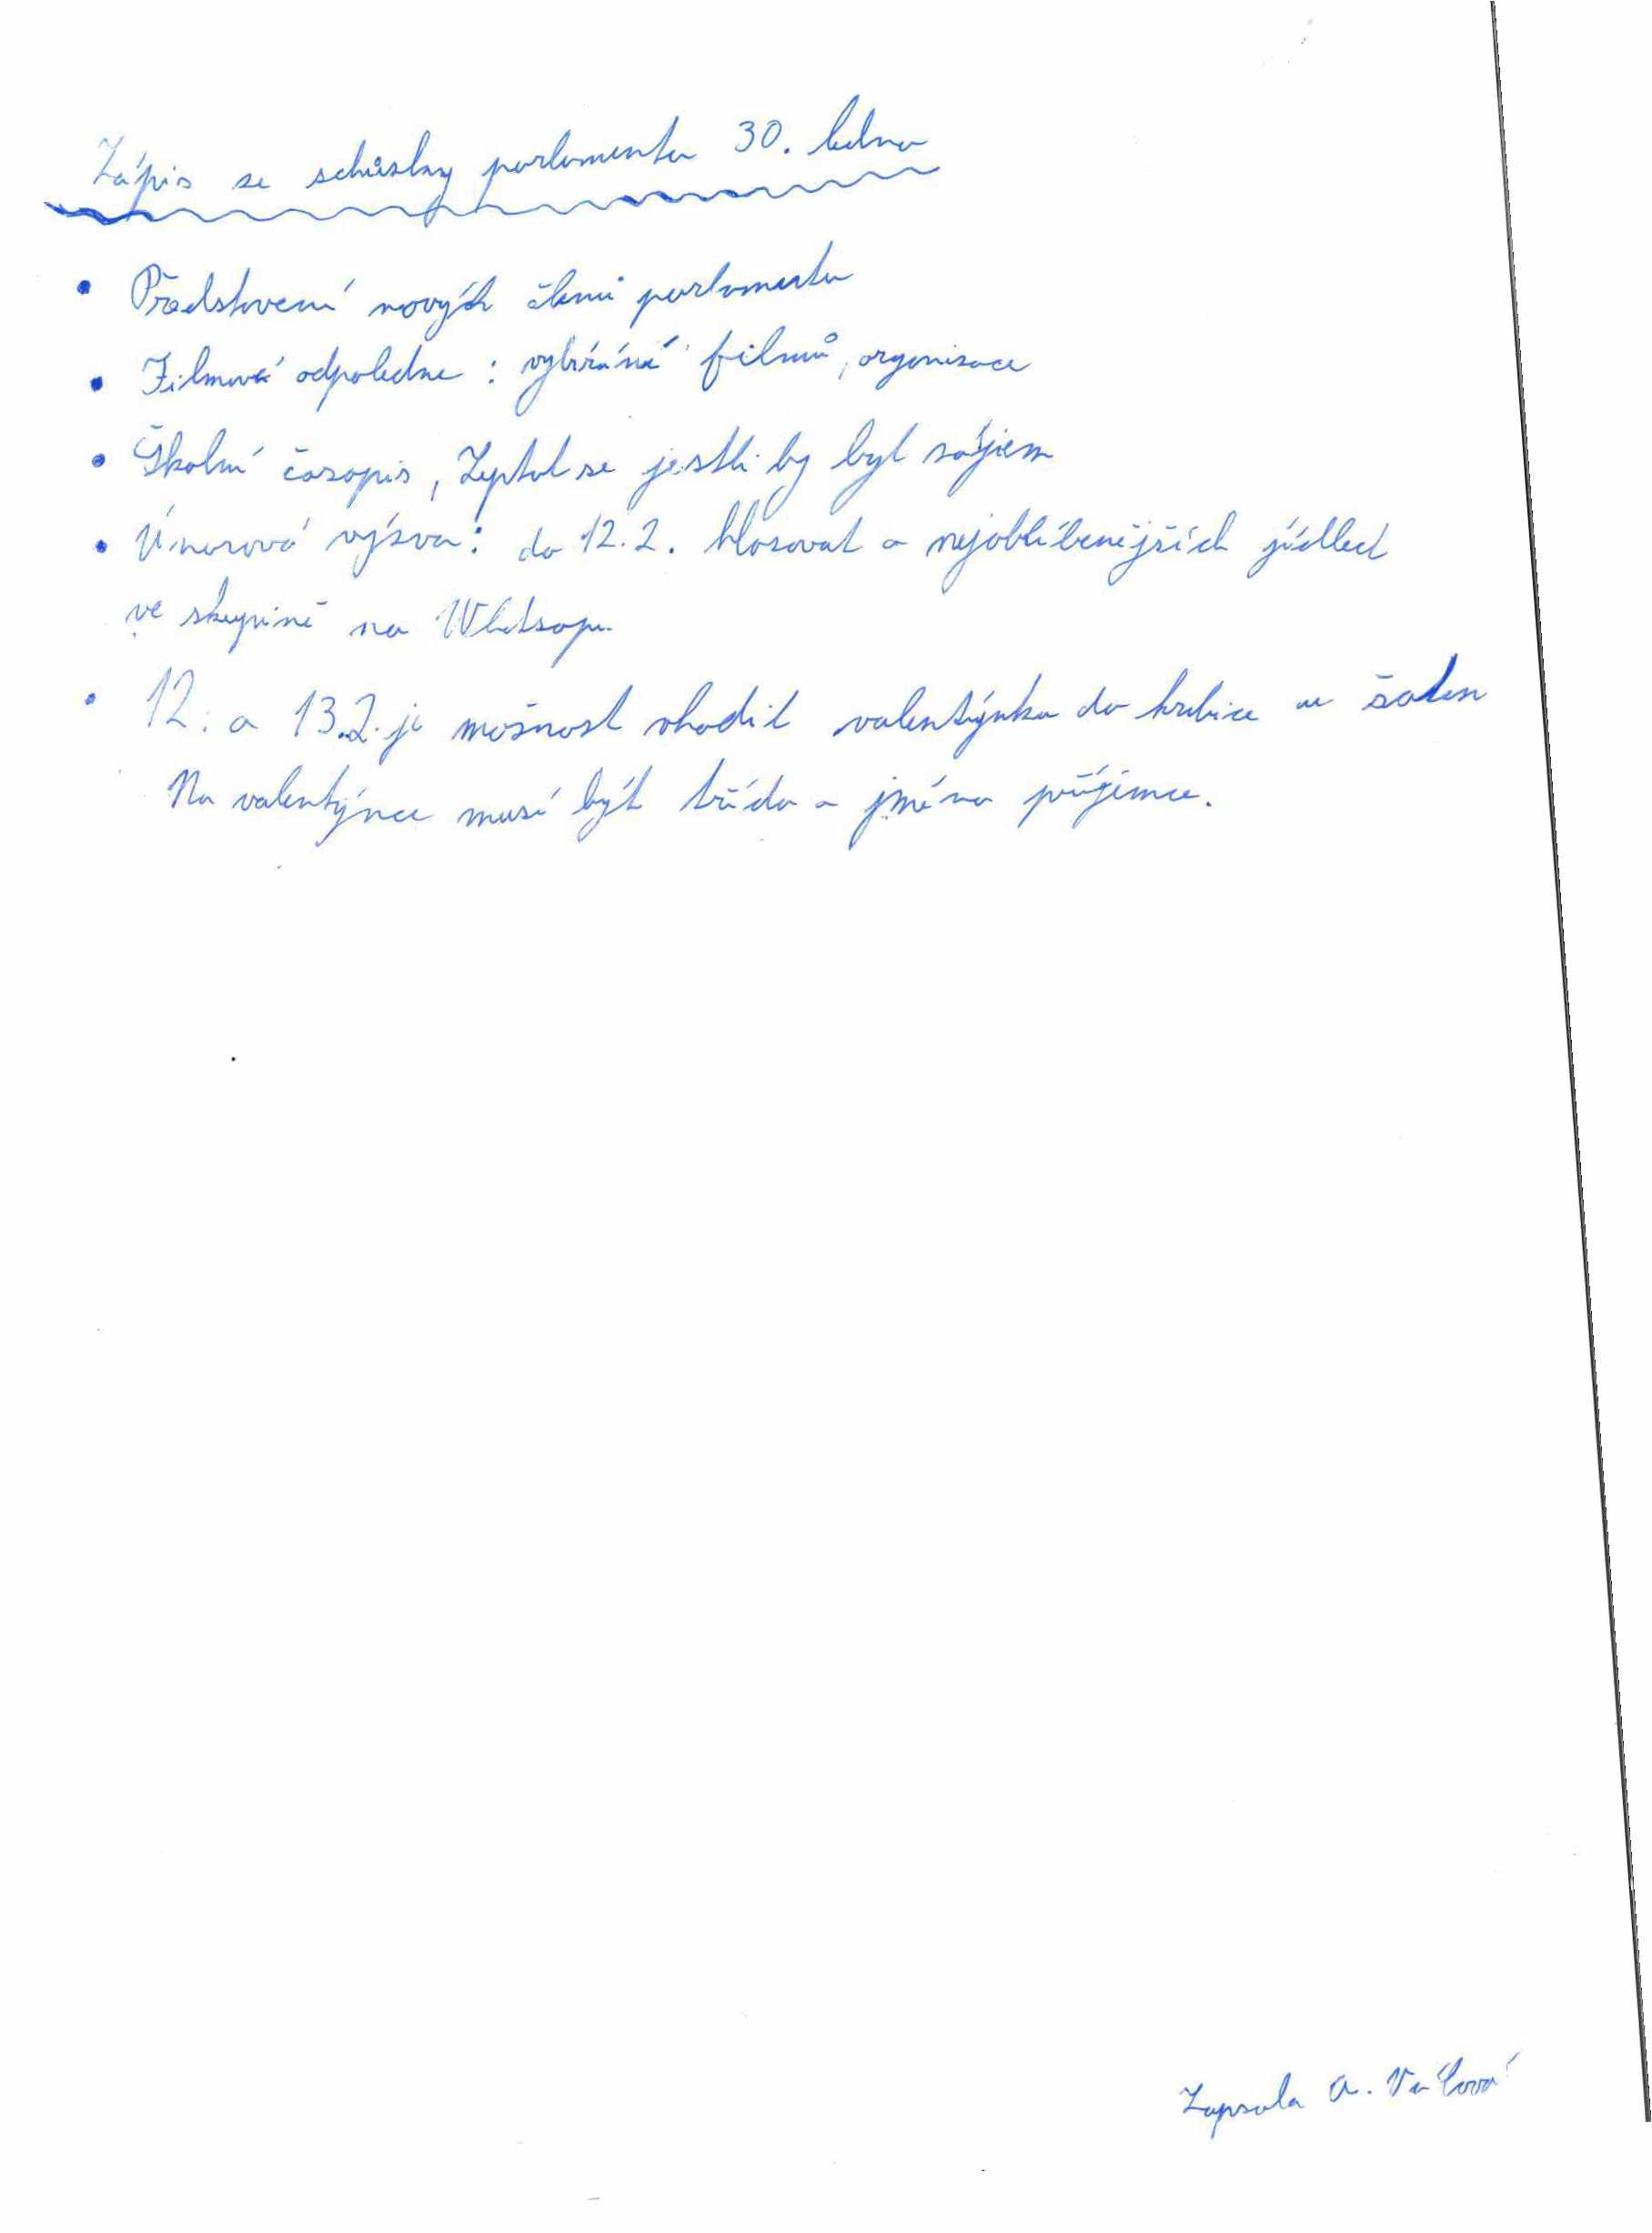 Zápis ze schůzky parlamentu 30. ledna
• Představení nových členů parlamentu
• Filmové odpoledne : vybírání filmů, organizace
• Školní časopis, Zeptat se jestli by byl zájem
• Únorová výzva: do 12.2. hlasovat o nejoblíbenějších jídlech
ve skupině na Whatsapu
• 12. a 13.2. je možnost vhodit valentýnku do krabice u šaten
Na valentýnce musí být třída a jméno příjemce.
Zapsala A. Válová